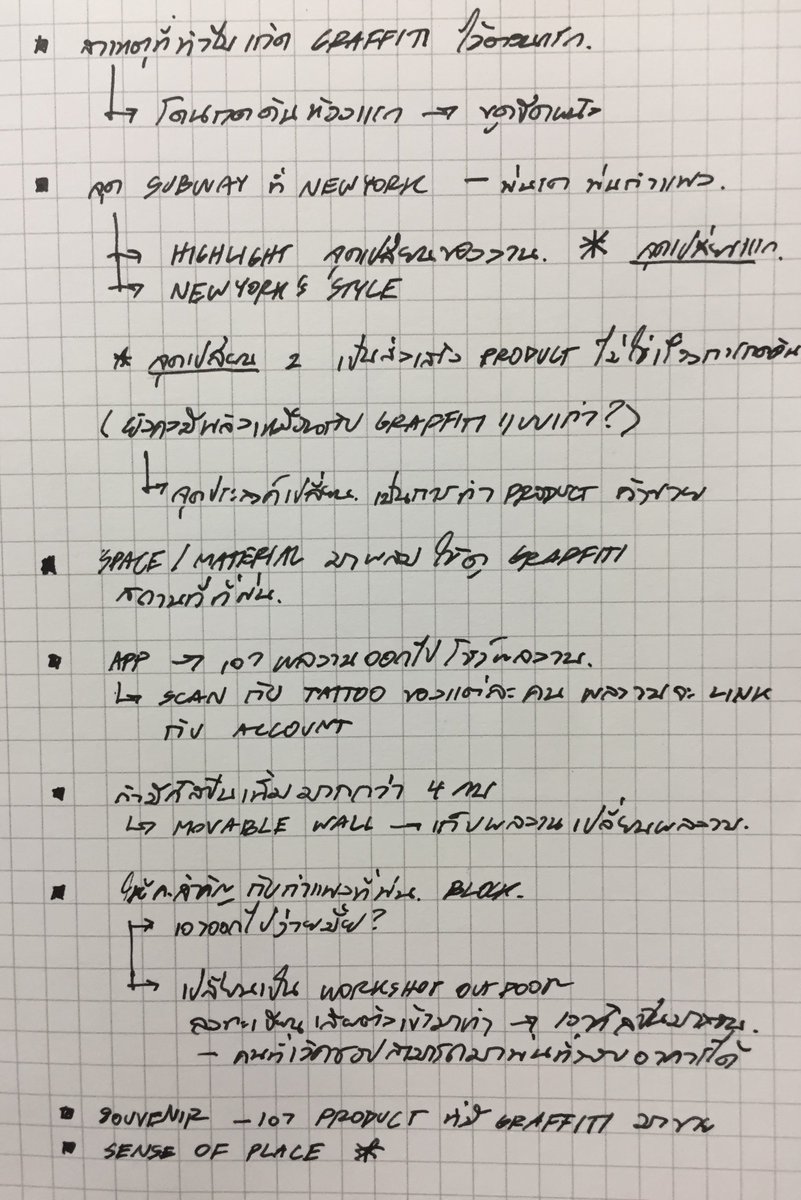 ▪ สาเหตุที่ทำให้เกิด GRAFFITI ไว้ตอนแรก.
↳ โดนกดดัน ห้องแรก → ขูดขีดผนัง
▪ จุด SUBWAY ที่ NEWYORK – พ่นรถ พ่นกำแพง.
↳ HIGHLIGHT จุดเปลี่ยนของงาน. * จุดเปลี่ยนแรก.
↳ NEWYORK'S STYLE
* จุดเปลี่ยน 2 เป็นส่งเสริม PRODUCT ไม่ใช่เรื่องการกดดัน
( ยังคงมีพลังเหมือนกับ GRAFFITI แบบเก่า? )
↳ จุดประสงค์เปลี่ยน. เป็นการทำ PRODUCT ค้าขาย
▪ SPACE / MATERIAL มาผสม ให้ดู GRAFFITI
สถานที่ที่พ่น.
▪ APP → เอาผลงานออกไปโชว์ผลงาน.
↳ SCAN กับ TATTOO ของแต่ละคน ผลงานจะ LINK
กับ ACCOUNT
▪ ถ้ามีศิลปินเพิ่มมากกว่า 4 คน
↳ MOVABLE WALL → เก็บผลงาน เปลี่ยนผลงาน.
▪ ให้ค.สำคัญ กับกำแพงที่พ่น. BLOCK.
↳ เอาออกไปง่ายมั้ย?
↳ เปลี่ยนเป็น WORKSHOP OUTDOOR
ลงทะเบียน เสียตังเข้ามาทำ → เอาศิลปินมาสอน.
– คนที่เวิคชอปสามารถมาพ่นที่รอบอาคารได้
▪ SOUVENIR – เอา PRODUCT ที่มี GRAFFITI มาขาย
▪ SENSE OF PLACE *